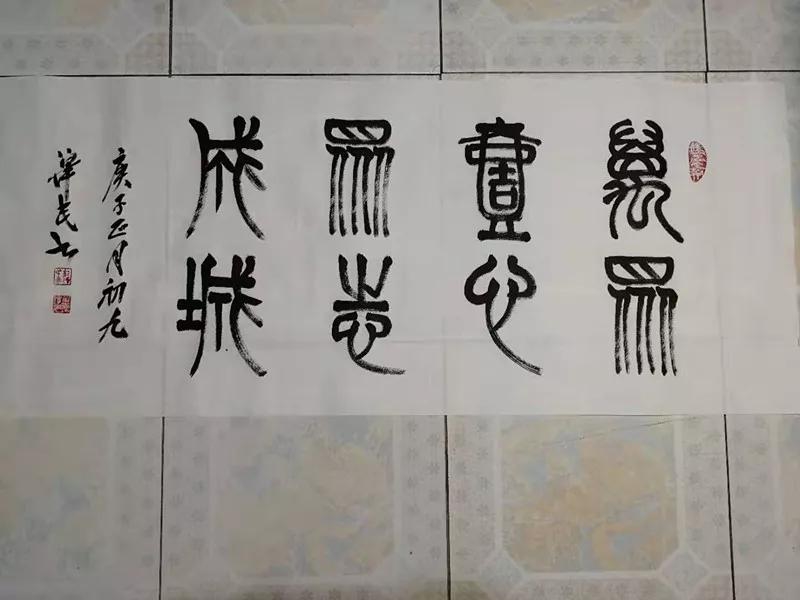 萬眾
壹心
眾志
成城
庚子正月初九
民书